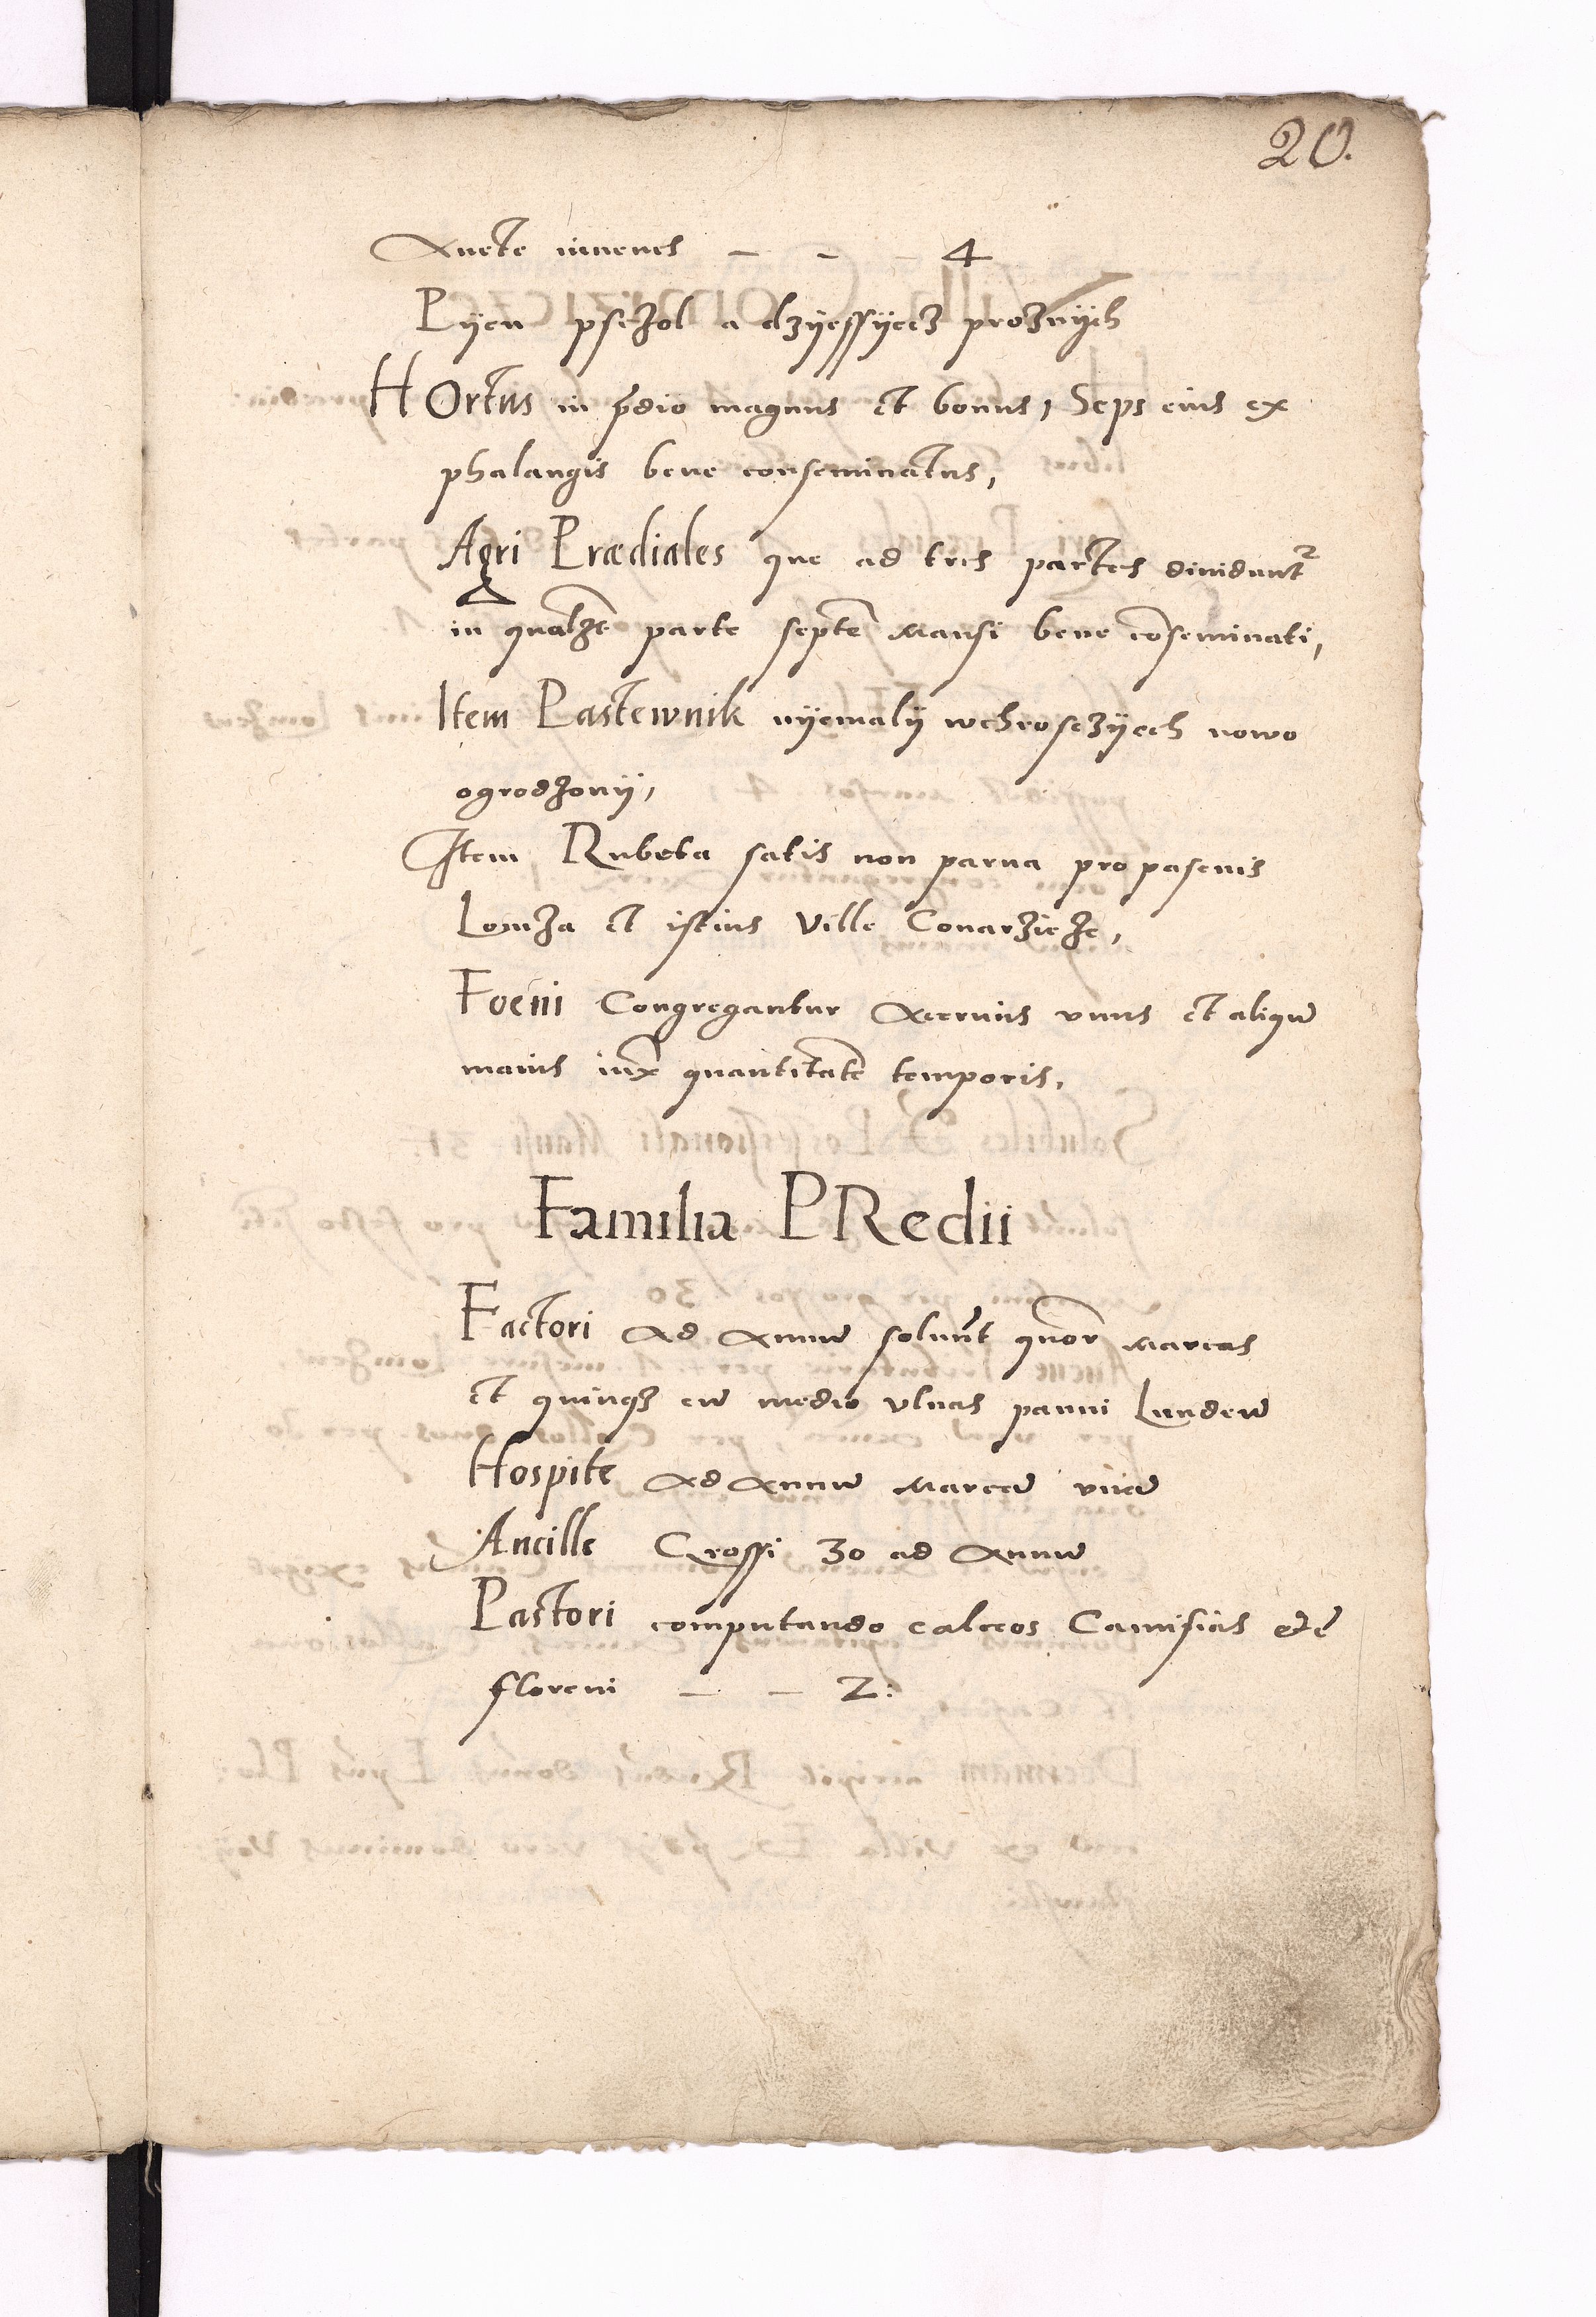 20.
Anete iuvenes – – – 4
Pyen psczol a dzyessyecz proznych
HOrtus in p̄dio magnus et bonus, Seps eius ex
phalangis bene conseminatus,
Agri Prædiales que ad tres partes diuidunt᷑
in qualz̄e parte septē Mansi bene cōseminati,
Item Pastewnik nyemaly wchrosczyech nowo
ogrodzony,
Item Rubeta satis non parua pro pascuis
Lomza et istius Ville Conarzicze,
Foeni Congregantur Aceruus vnus et aliqn̄
maius iux̄ quantitatē temporis,
Familia PRedii
Factori Ad Annū soluūt quor̄ Marcas
et quinqз cū medio vlnas panni Lundeñ
Hospite Ad Annū Marcā vnā
Ancille Grossi 30 ad Annū
Pastori computando calceos Camisias etc̄
floreni – – 2: